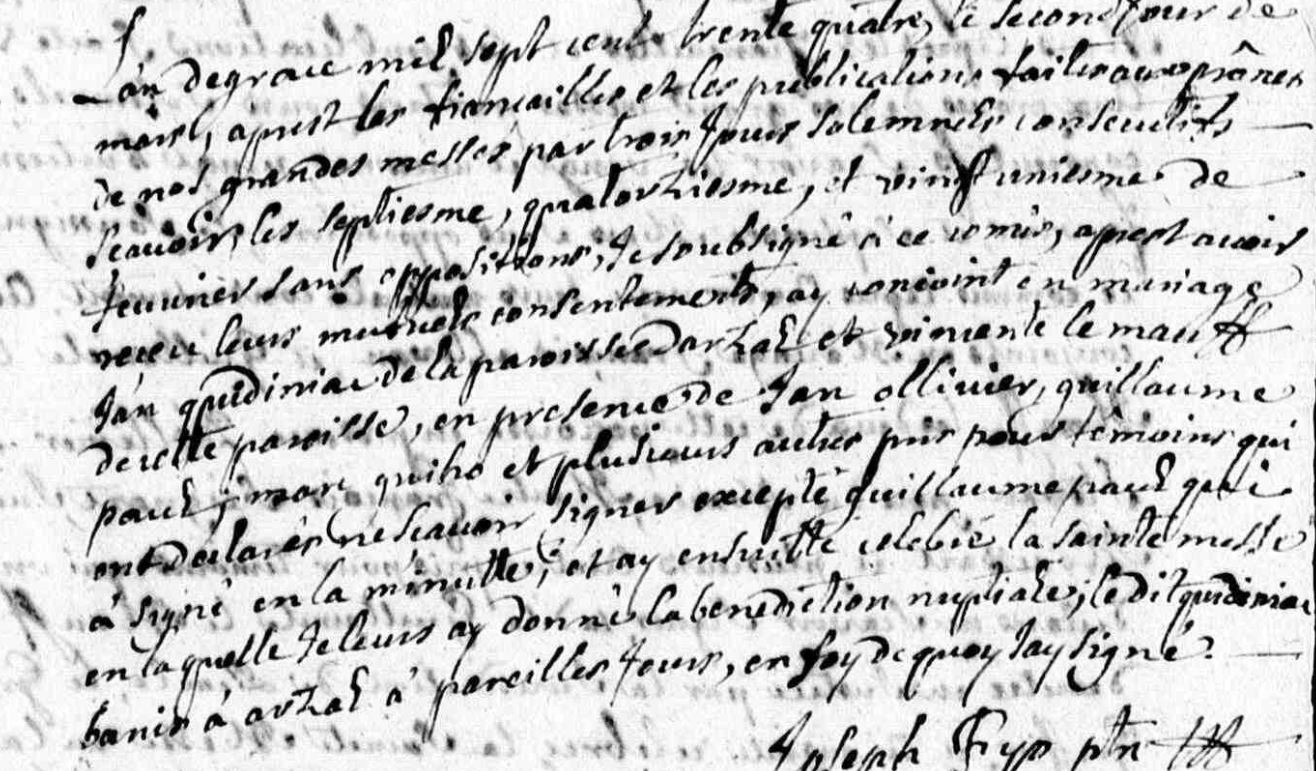 L'an de grace mil sept cents trente quatre, le second jour de
mars, aprest les fiancailles et les publications faites aux prônes
de nos grandes messes par trois jours solemnels consecutifs
scavoir, les septiesme, quatortziesme, et vingt uniesme de
feuvrier sans oppositions, Je soubsigné à ce comis, aprest avoir
receu leurs mutuels consentements, ay conjoint en mariage
Jan quidiniac de la paroisse d'artzal et vincente le mauff
de cette paroisse, en presence de Jan ollivier, guillaume
paul, marc quiho et plusieurs autres pris pour témoins qui
ont declarés ne scavoir signer excepté guillaume paul qui
à signé en la minutte, et ay ensuitte celebré la sainte messe
en laquelle Je leurs ay donné la benediction nuptiale, le dit quidiniac
banis à artzal à pareilles jours, en foy de quoy Jay signé.
Joseph ptr